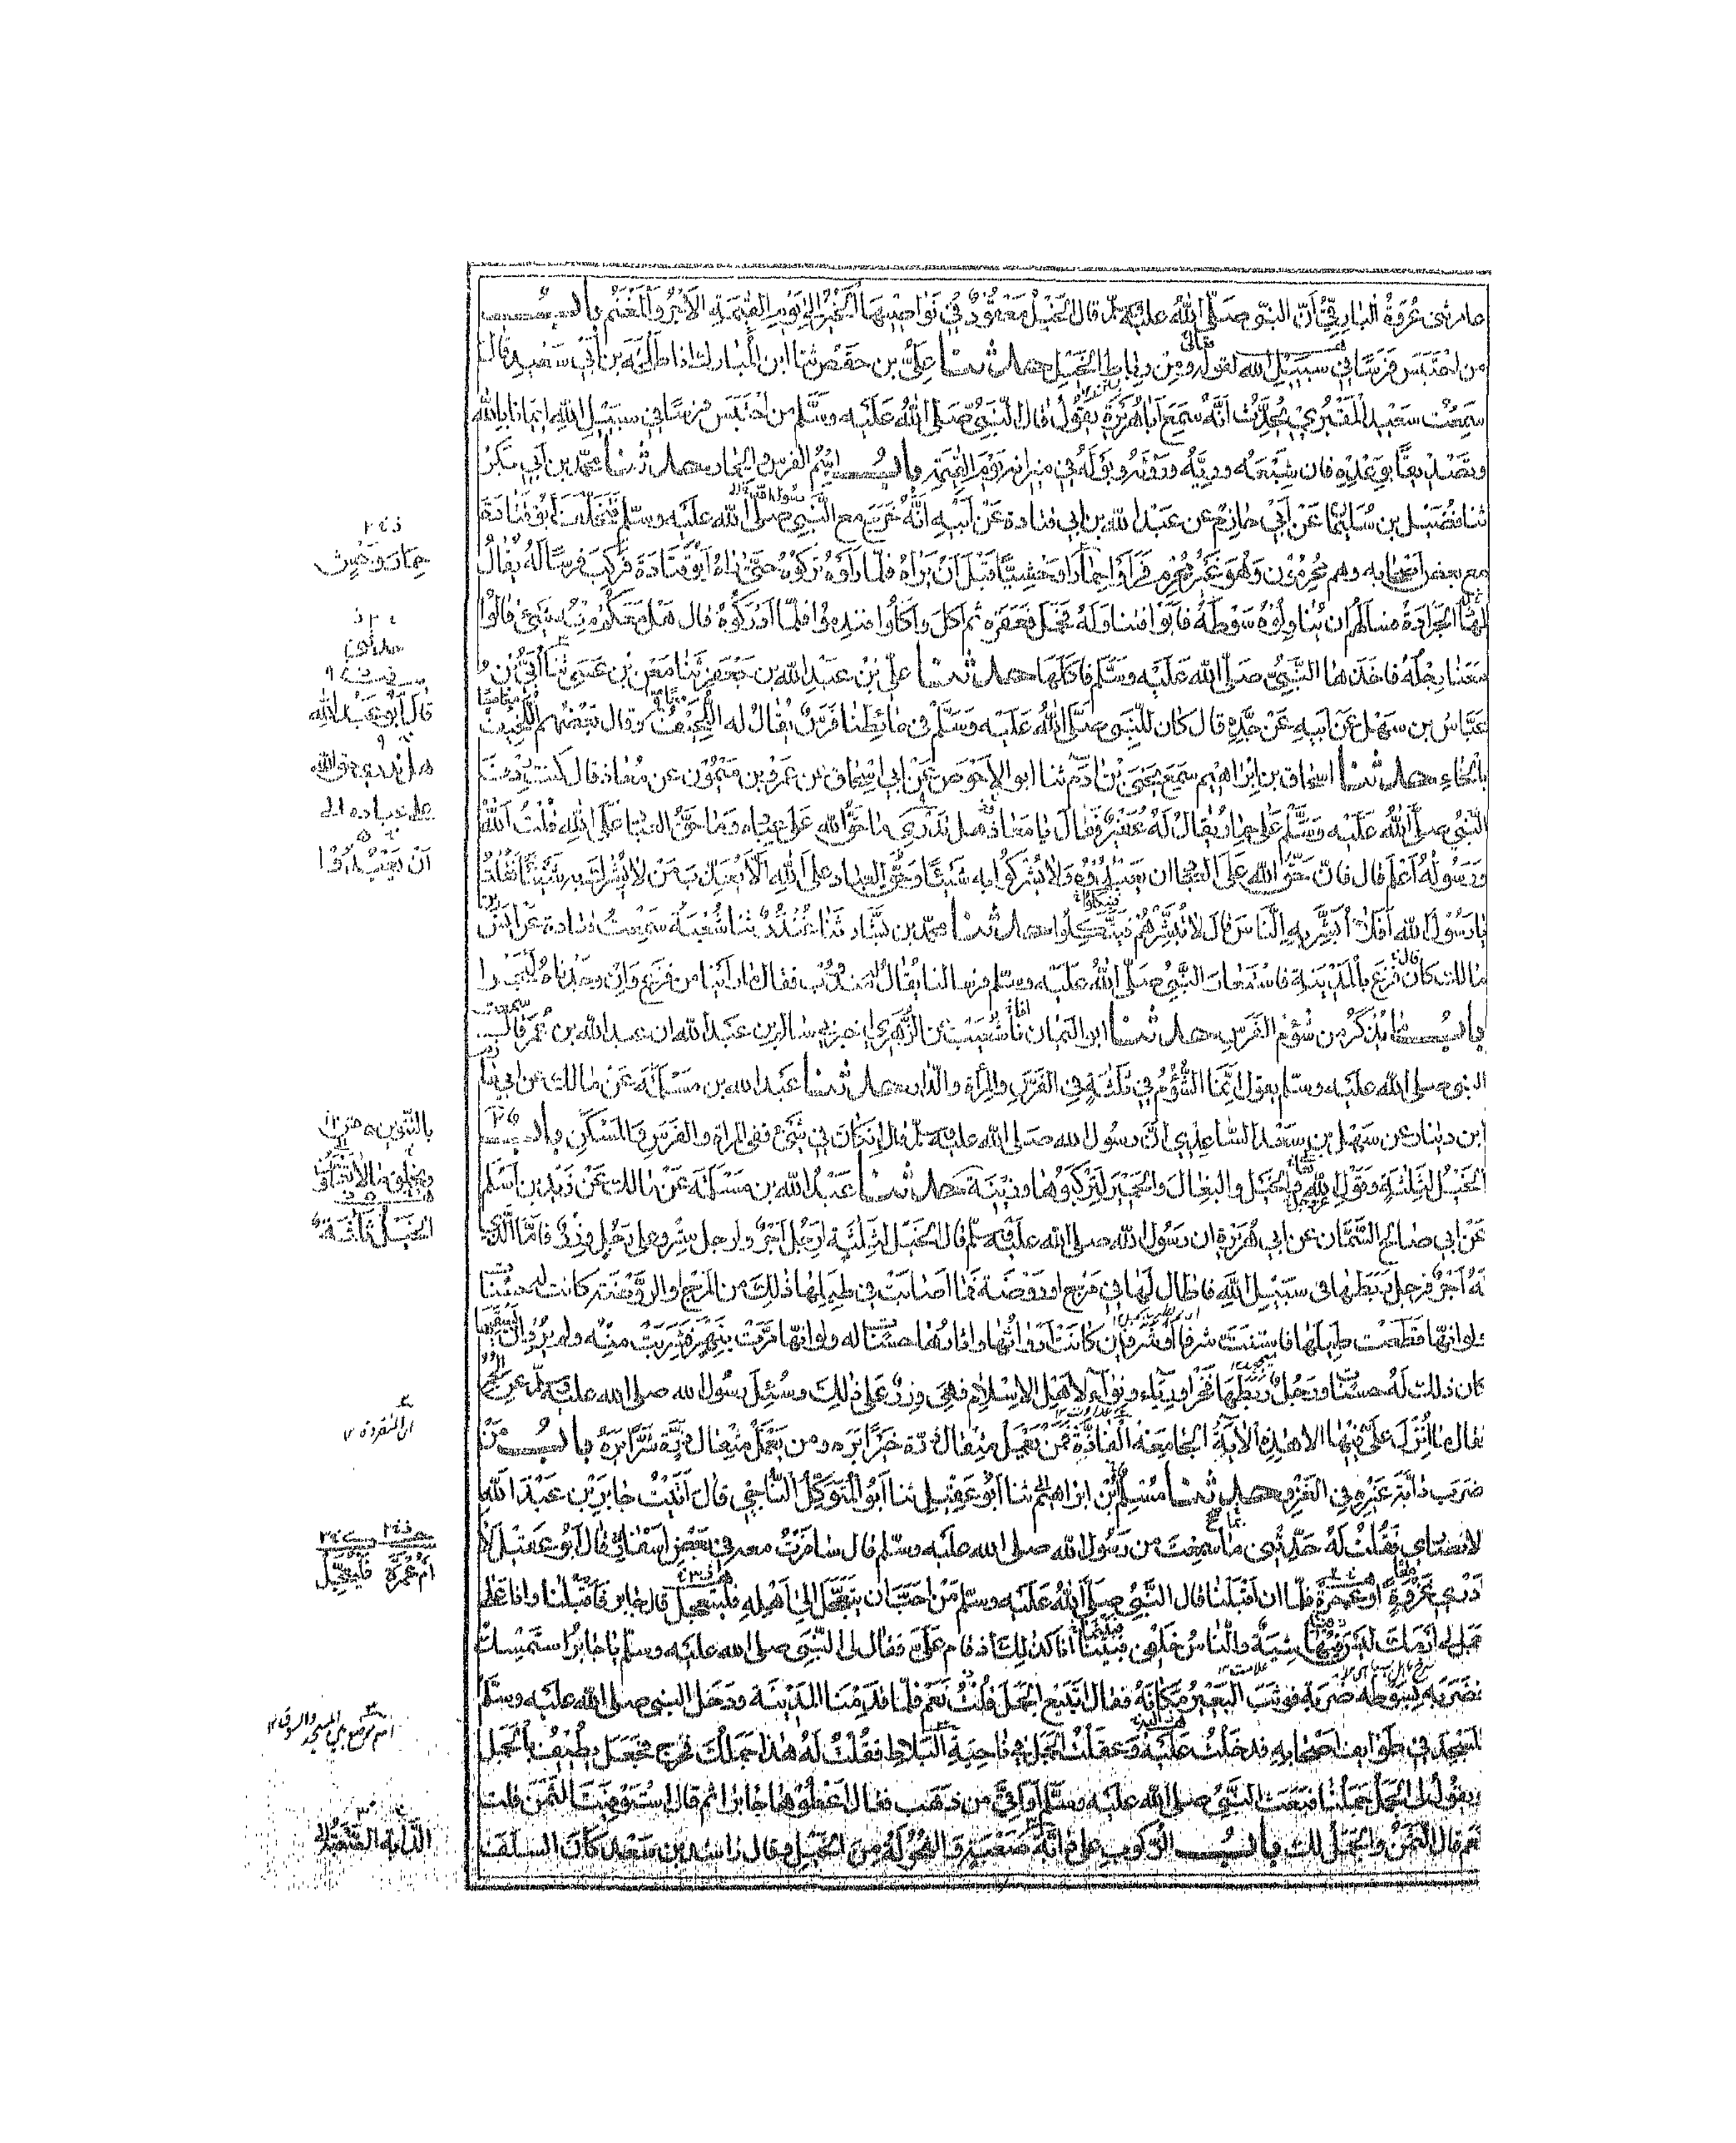 عامر ثنى عروة البارقي أن النبي صلى الله عليه وسلم قال الخيل معقود في نواصيها الخير إلى يوم القيمة الأجر والمغنم باب
من احتبس فرسا في سبيل الله لقوله تعالى ومن رباط الخيل حدثنا علي بن حفص ثنا ابن المبارك انا طلحة بن أبي سعيد قال
سمعت سعيد المقبري يحدث أنه سمع أبا هريرة يقول قال النبي صلى الله عليه وسلم من احتبس فرسا في سبيل الله إيمانا بالله
وتصديقا بوعده فان شبعه وريه وروثه وبوله في ميزانه يوم القيمة باب اسم الفرس والحمار حدثنا محمد بن أبي بكر
ثنا فضيل بن سليمان عن أبي حازم عن عبد الله بن ابي قتادة عن أبيه أنه خرج مع النبي صلى الله عليه وسلم فتخلف أبو قتادة
مع بعض أصحابه وهم محرمون وهو غير محرم فرأوا حمارا وحشيا قبل أن يراه فلما رأوه تركوه حتى رآه أبو قتادة فركب فرسا له يقال
لها الجرادة فسألهم ان يناولوه سوطه فأبوا فتناوله فحمل فعقره ثم اكل وأكلوا فندموا فلما أدركوه قال هل معكم منه شيئ قالوا
معنا رجله فاخذها النبي صلى الله عليه وسلم فاكلها حدثنا علي بن عبد الله بن جعفر ثنا معن بن عيسى ثنا أبي بن
عباس بن سهل عن أبيه عن جده قال كان للنبي صلى الله عليه وسلم في حائطنا فرس يقال له اللحيف وقال بعضهم اللخيف
بالخاء حدثنا اسحاق بن ابراهيم سمع يحيى بن آدم ثنا ابو الاحوص عن أبي اسحاق عن عمرو بن ميمون عن معاذ قال كنت ردف
النبي صلى الله عليه وسلم على حمار يقال له عفير فقال يا معاذ هل تدري ما حق الله على عباده وما حق العباد على الله قلت الله
ورسوله أعلم قال فان حق الله على العباد ان يعبدوه ولا يشركوا به شيئا وحق العباد على الله ألا يعذب من لا يشرك به شيئا فقلت
يا رسول الله أفلا أبشر به الناس قال لا تبشرهم فيتكلوا حدثنا محمد بن بشار ثنا غندر ثنا شعبة سمعت قتادة عن أنس بن
مالك كان فزع بالمدينة فاستعار النبي صلى الله عليه وسلم فرسا لنا يقال له مندوب فقال ما رأينا من فزع وان وجدناه لبحرا
باب ما يذكر من شؤم الفرس حدثنا ابو اليمان انا شعيب عن الزهري اخبرني سالم بن عبد الله ان عبد الله بن عمر قال سمعت
النبي صلى الله عليه وسلم يقول انما الشؤم في ثلثة في الفرس والمرأة والدار حدثنا عبد الله بن مسلمة عن مالك عن ابي حازم
ابن دينار عن سهل بن سعد الساعدي ان رسول الله صلى الله عليه وسلم قال إن كان في شيئ ففي المراة والفرس والمسكن باب
الخيل لثلثة وقول الله تعالى والخيل والبغال والحمير لتركبوها وزينة حدثنا عبد الله بن مسلمة عن مالك عن زيد بن أسلم
عن ابي صالح السمان عن ابي هريرة ان رسول الله صلى الله عليه وسلم قال الخيل لثلثة لرجل أجر ولرجل ستر وعلى رجل وزر فاما الذي
له أجر فرجل ربطها في سبيل الله فاطال لها في مرج او روضة فما اصابت في طيلها ذلك من المرج او الروضة كانت له حسنات
ولو انها قطعت طيلها فاستنت شرفا أو شرفين كانت أرواثها واثارها حسنات له ولو انها مرت بنهر فشربت منه ولم يرد ان يسقيها
كان ذلك له حسنات ورجل ربطها فخرا ورياء ونواء لاهل الاسلام فهي وزر على ذلك وسئل رسول الله صلى الله عليه وسلم عن الحمر
فقال ما أنزل علي فيها الا هذه الآية الجامعة الفاذة فمن يعمل مثقال ذرة خيرا يره ومن يعمل مثقال ذرة شرا يره باب من
ضرب دابة غيره في الغزو حدثنا مسلم بن ابراهيم ثنا أبو عقيل ثنا أبو المتوكل الناجي قال أتيت جابر بن عبد الله
الانصاري فقلت له حدثني ما سمعت من رسول الله صلى الله عليه وسلم قال سافرت معه في بعض أسفاره قال أبو عقيل لا
أدري غزوة أو عمرة فلما ان اقبلنا قال النبي صلى الله عليه وسلم من احب ان يتعجل إلى أهله فليتعجل قال جابر فاقبلنا وانا على
جمل لي ارمك ليس فيها شية والناس خلفي فبينا أنا كذلك اذ قام علي فقال لي النبي صلى الله عليه وسلم يا جابر استمسك
فضربه بسوطه ضربة فوثب البعير مكانه فقال اتبيع الجمل قلت نعم فلما قدمنا المدينة ودخل النبي صلى الله عليه وسلم
المسجد في طوايف اصحابه فدخلت عليه وعقلت الجمل في ناحية البلاط فقلت له هذا جملك فخرج فجعل يطيف بالجمل
ويقول الجمل جملنا فبعث النبي صلى الله عليه وسلم أواقي من ذهب فقال اعطوها جابرا ثم قال استوفيت الثمن قلت
نعم قال الثمن والجمل لك باب الركوب على دابة صعبة والفحولة من الخيل وقال راشد بن سعد كان السلف
حمار وحش
قال أبو عبد الله
هل تدري ما حق الله
على عباده
أن يعبدوا
بالتنوين
الخيل ثلاثة
أم عمرة فليعجل
الدابة الصعبة